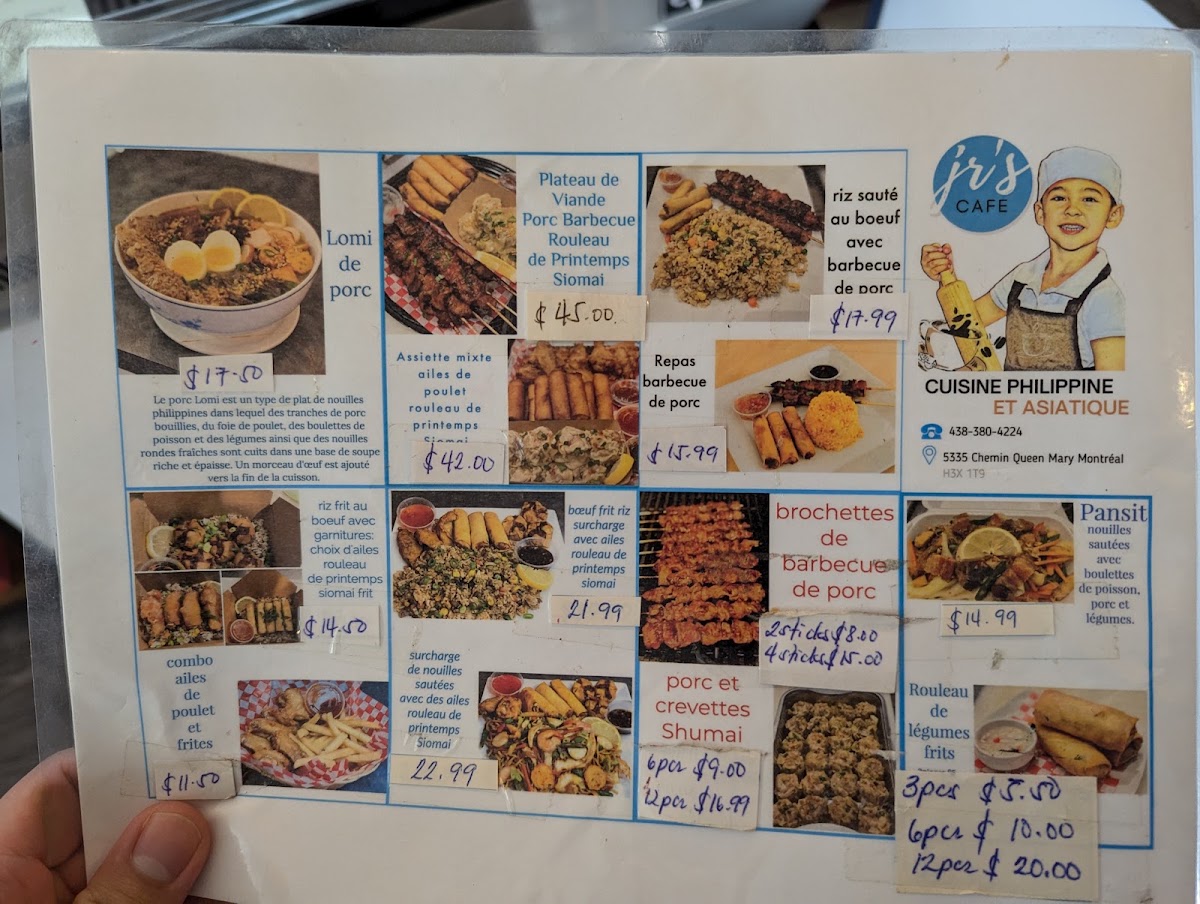 Lomi
de
porc
$17.50
Le porc Lomi est un type de plat de nouilles
philippines dans lequel des tranches de porc
bouillies, du foie de poulet, des boulettes de
poisson et des légumes ainsi que des nouilles
rondes fraîches sont cuits dans une base de soupe
riche et épaisse. Un morceau d'œuf est ajouté
vers la fin de la cuisson.
Plateau de
Viande
Porc Barbecue
Rouleau
de Printemps
Siomai
$45.00
Assiette mixte
ailes de
poulet
rouleau de
printemps
Siomai
$42.00
riz sauté
au boeuf
avec
barbecue
de porc
$17.99
Repas
barbecue
de porc
$15.99
jr's
CAFE
CUISINE PHILIPPINE
ET ASIATIQUE
438-380-4224
5335 Chemin Queen Mary Montréal
H3X 1T9
riz frit au
boeuf avec
garnitures:
choix d'ailes
rouleau
de printemps
siomai frit
$14.50
combo
ailes
de
poulet
et
frites
$11.50
bœuf frit riz
surcharge
avec ailes
rouleau de
printemps
siomai
21.99
surcharge
de nouilles
sautées
avec des ailes
rouleau de
printemps
Siomai
22.99
brochettes
de
barbecue
de porc
2sticks $8.00
4sticks $15.00
porc et
crevettes
Shumai
6pcr $9.00
12pcr $16.99
Pansit
nouilles
sautées
avec
boulettes
de poisson,
porc et
légumes.
$14.99
Rouleau
de
légumes
frits
3pcs $5.50
6pcr $ 10.00
12pcr $ 20.00